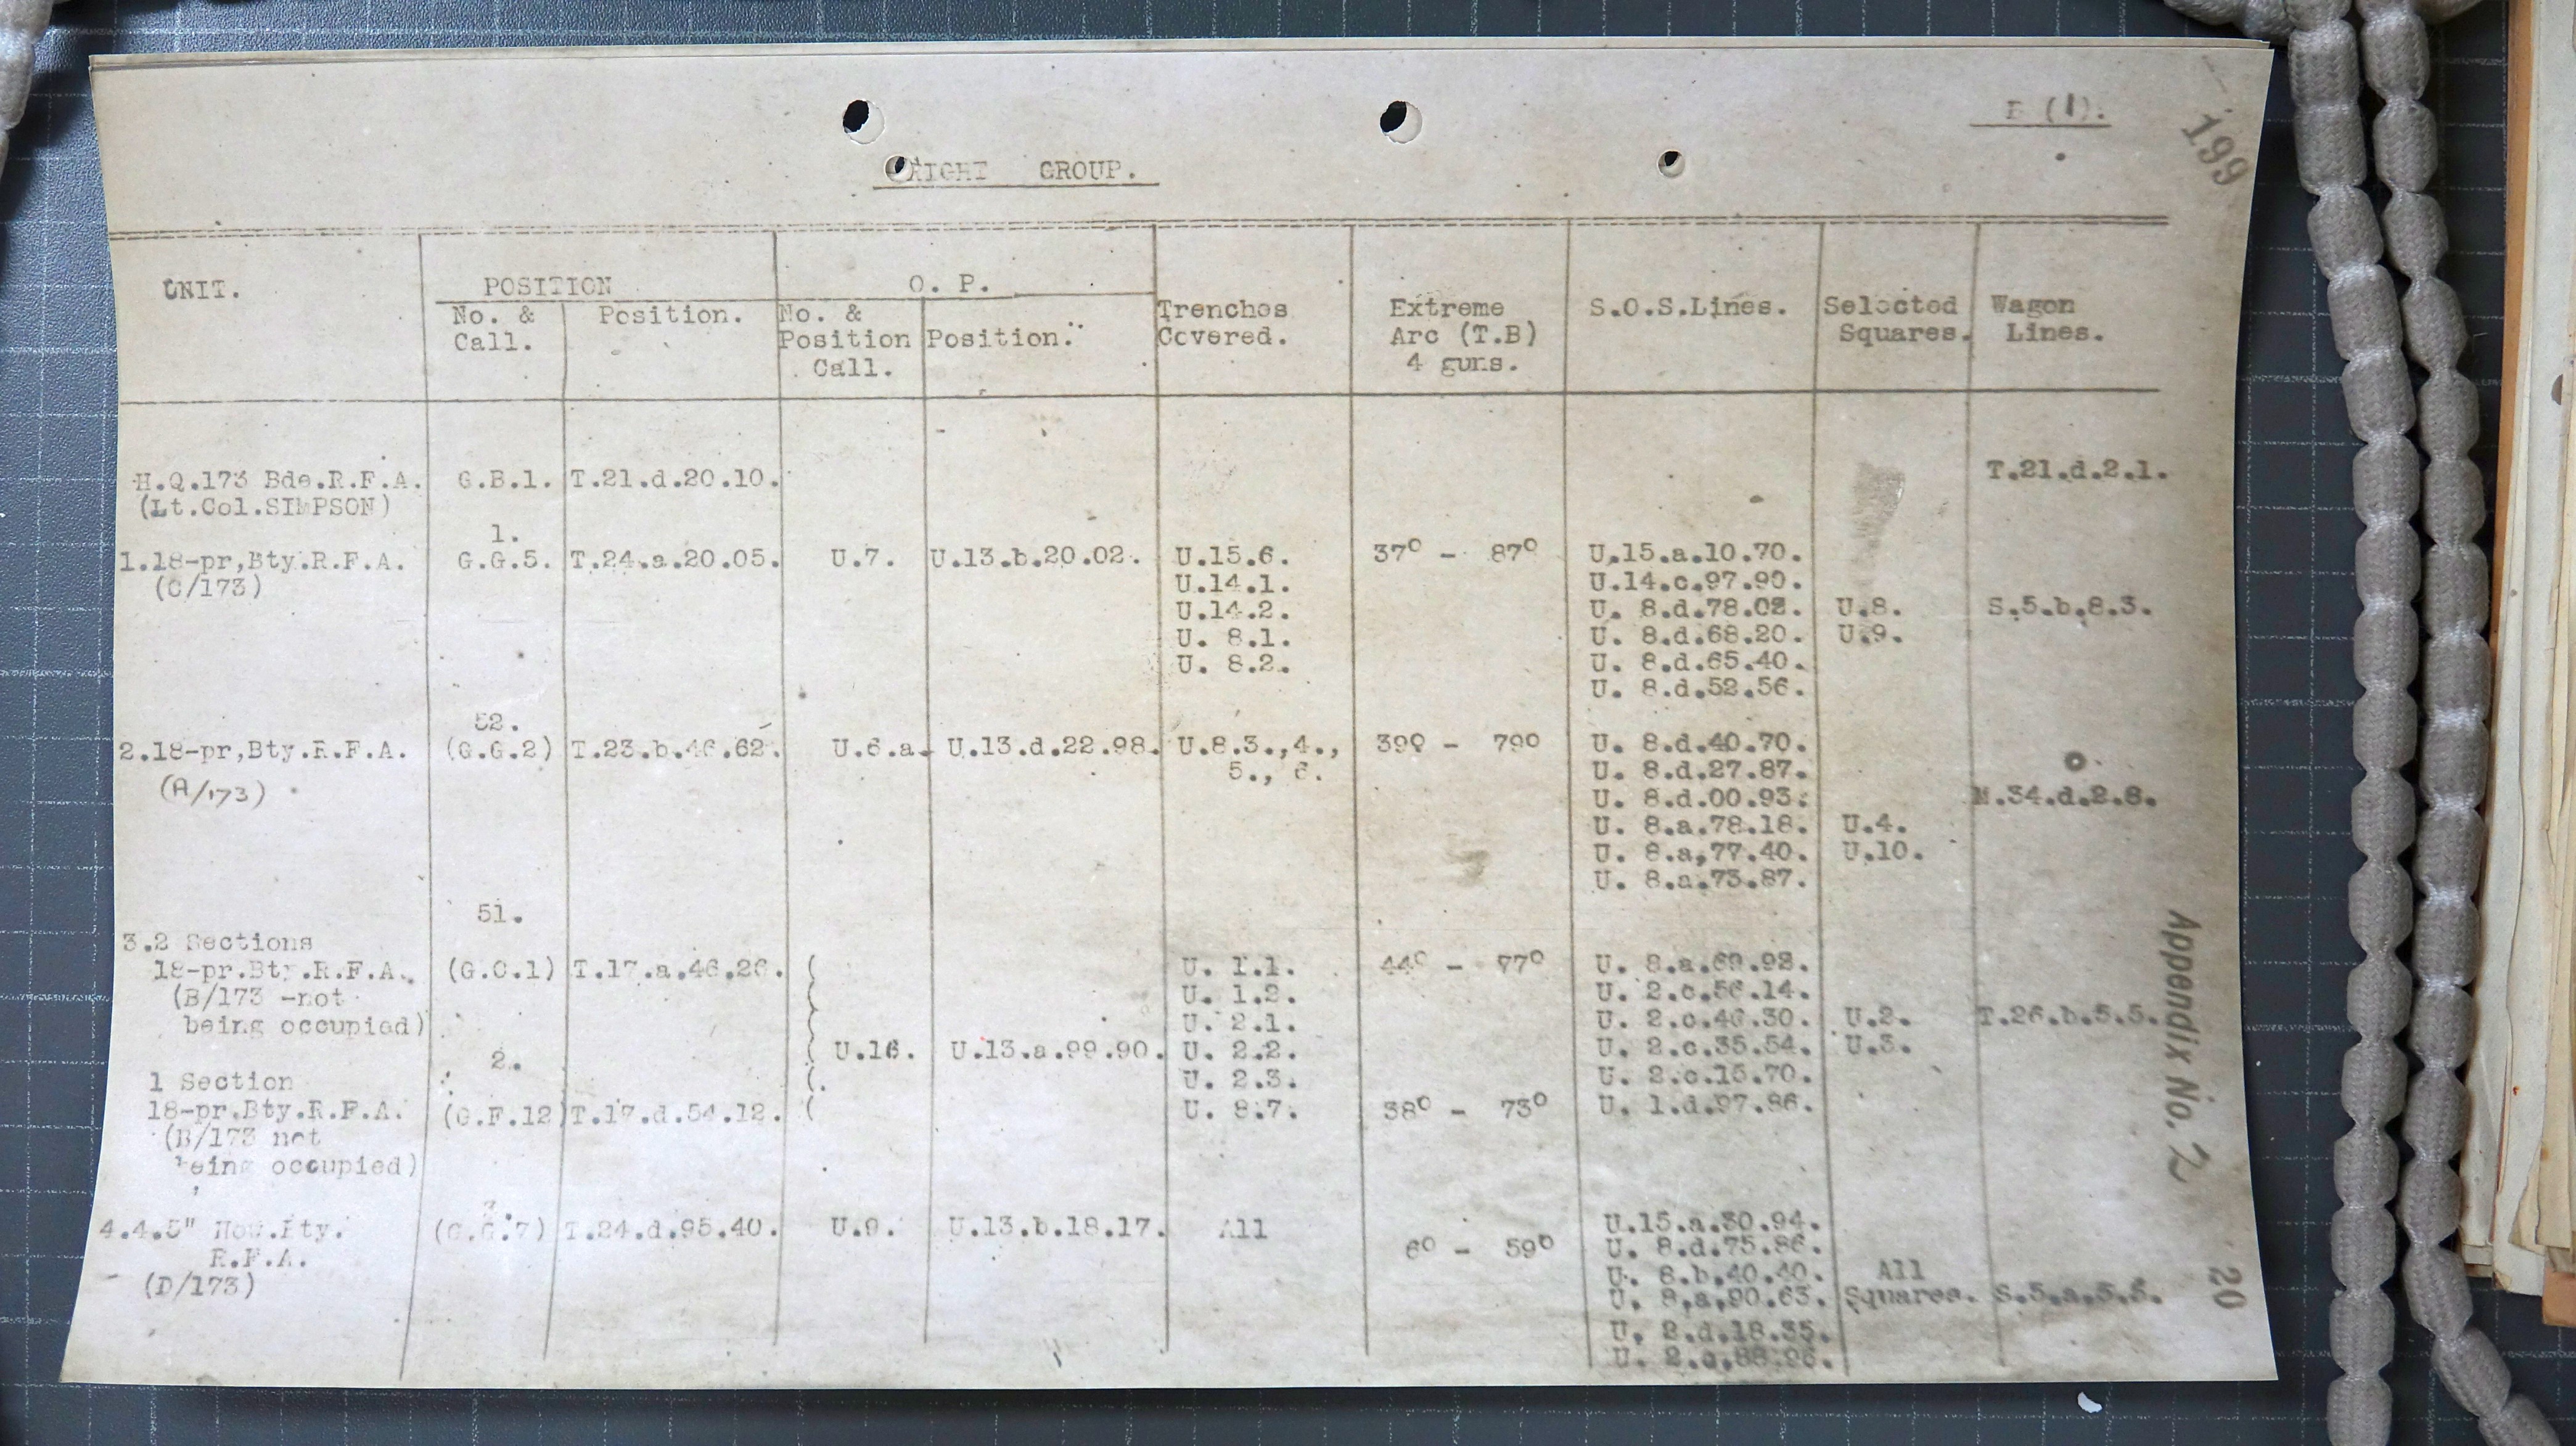 B (1).
199
RIGHT GROUP.
UNIT. POSITION O. P. Trenches Covered. Extreme Arc (T.B) 4 guns. S.O.S.Lines. Selected Squares. Wagon Lines.
No. & Call. Position. No. & Position Call. Position.
H.Q.173 Bde.R.F.A. G.B.1. T.21.d.20.10. T.21.d.2.1.
(Lt.Col.SIMPSON)
1.
1.18-pr,Bty.R.F.A. G.G.5. T.24.a.20.05. U.7. U.13.b.20.02. U.15.6. 37° - 87° U.15.a.10.70.
(C/173) U.14.1. U.14.c.97.90.
U.14.2. U. 8.d.78.02. U.8. S.5.b.8.3.
U. 8.1. U. 8.d.68.20. U.9.
U. 8.2. U. 8.d.65.40.
U. 8.d.52.56.
52.
2.18-pr,Bty.R.F.A. (G.G.2) T.23.b.46.62. U.6.a. U.13.d.22.98. U.8.3.,4., 39° - 79° U. 8.d.40.70.
5., 6. U. 8.d.27.87.
(A/173) U. 8.d.00.93. M.34.d.2.8.
U. 8.a.78.18. U.4.
U. 8.a,77.40. U.10.
U. 8.a.73.87.
51.
3.2 Sections
18-pr.Bty.R.F.A. (G.C.1) T.17.a.46.26. U. 1.1. 44° - 77° U. 8.a.69.98.
(B/173 -not U. 1.2. U. 2.c.56.14.
being occupied) U. 2.1. U. 2.c.46.30. U.2. T.26.b.5.5.
2. U.16. U.13.a.99.90. U. 2.2. U. 2.c.35.54. U.3.
1 Section U. 2.3. U. 2.c.15.70.
18-pr.Bty.R.F.A. (G.F.12) T.17.d.54.12. U. 8.7. 38° - 73° U. 1.d.97.86.
(B/173 not
being occupied)
3.
4.4.5" How.Bty. (G.G.7) T.24.d.95.40. U.9. U.13.b.18.17. All 6° - 59° U.15.a.30.94.
R.F.A. U. 8.d.75.86.
(D/173) U. 8.b.40.40. All
U. 8,a,90.63. Squares. S.5.a.5.5.
U. 2.d.18.35.
U. 2.c.88.96.
Appendix No. 2
20